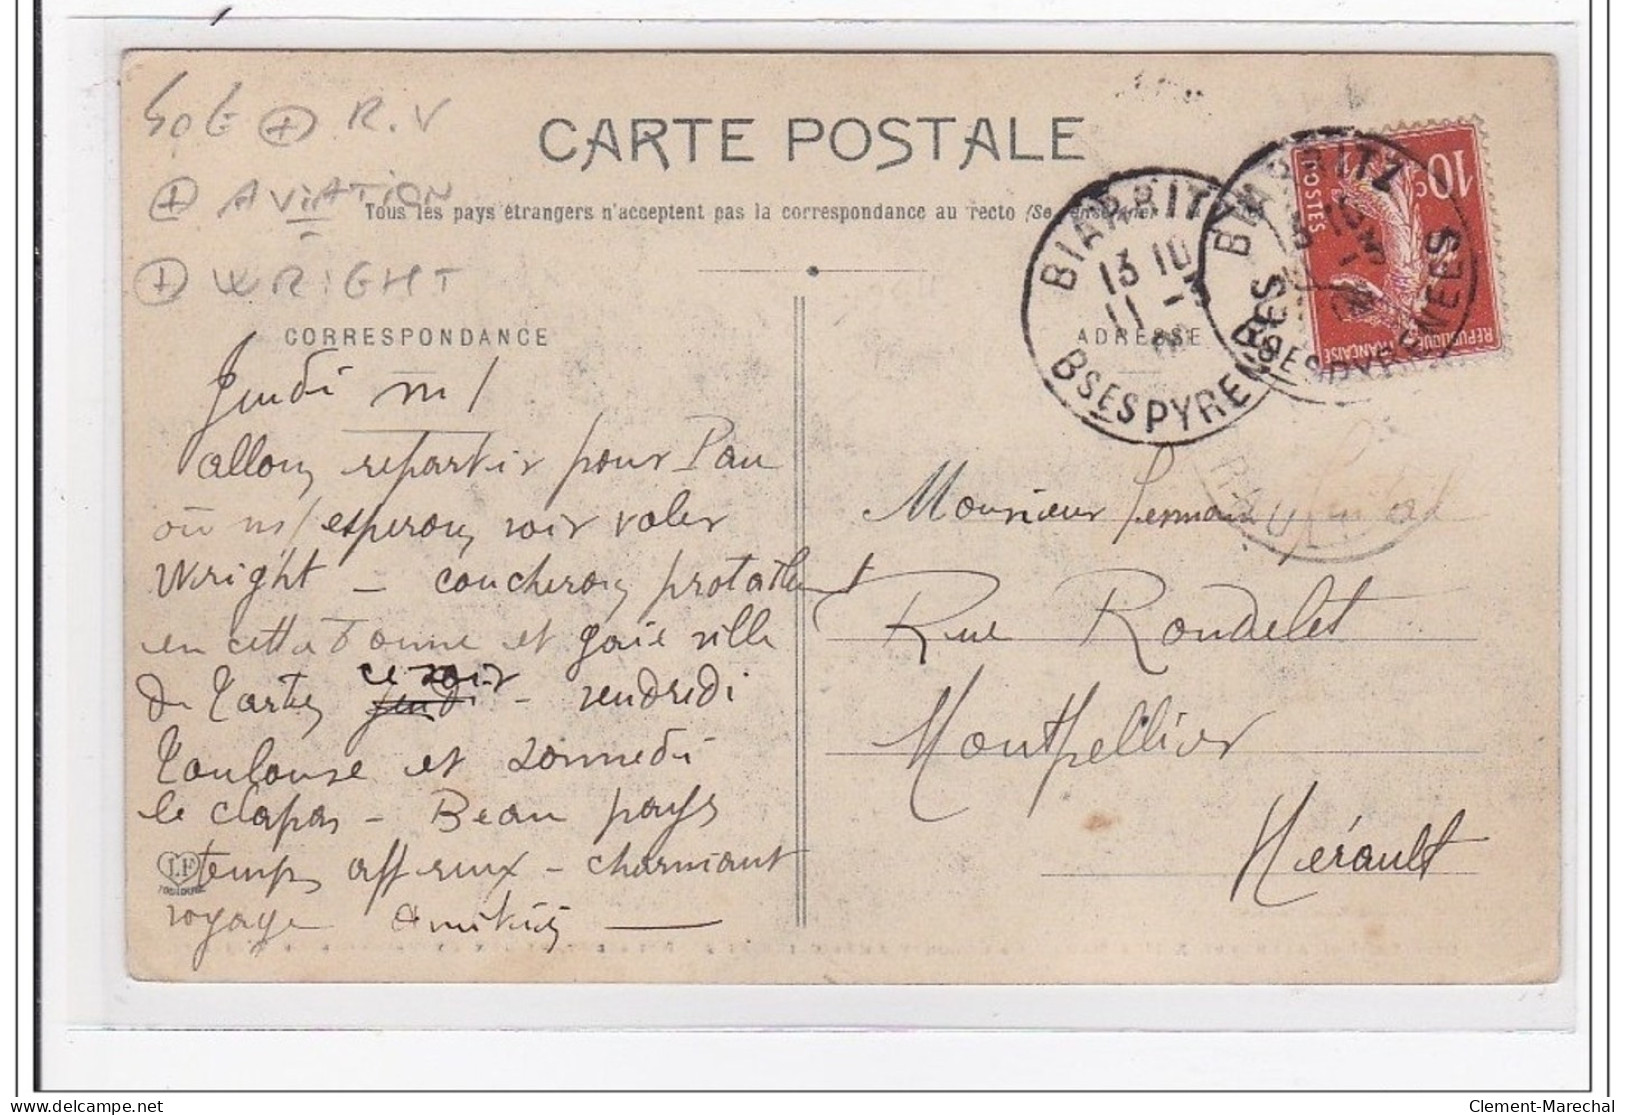 50 € + R.V
+ AVIATION
+ WRIGHT
CARTE POSTALE
Tous les pays étrangers n'acceptent pas la correspondance au recto (Se renseigner)
CORRESPONDANCE
ADRESSE
BIARRITZ
13 10
11 - 1
BSES PYRENEES
BIARRITZ
BSES PYRENEES
10c
POSTES
REPUBLIQUE FRANCAISE
Jeudi ns/
allons repartir pour Pau
où ns/ esperons voir voler
Wright - coucherons
en cette bonne et gaie ville
de ce soir jeudi - vendredi
Toulouse et
le clapas - Beau pays
temps affreux - charmant
voyage Amitiés
LF
TOULOUSE
Monsieur
Rue Rondelet
Montpellier
Hérault
Clement-Marechal